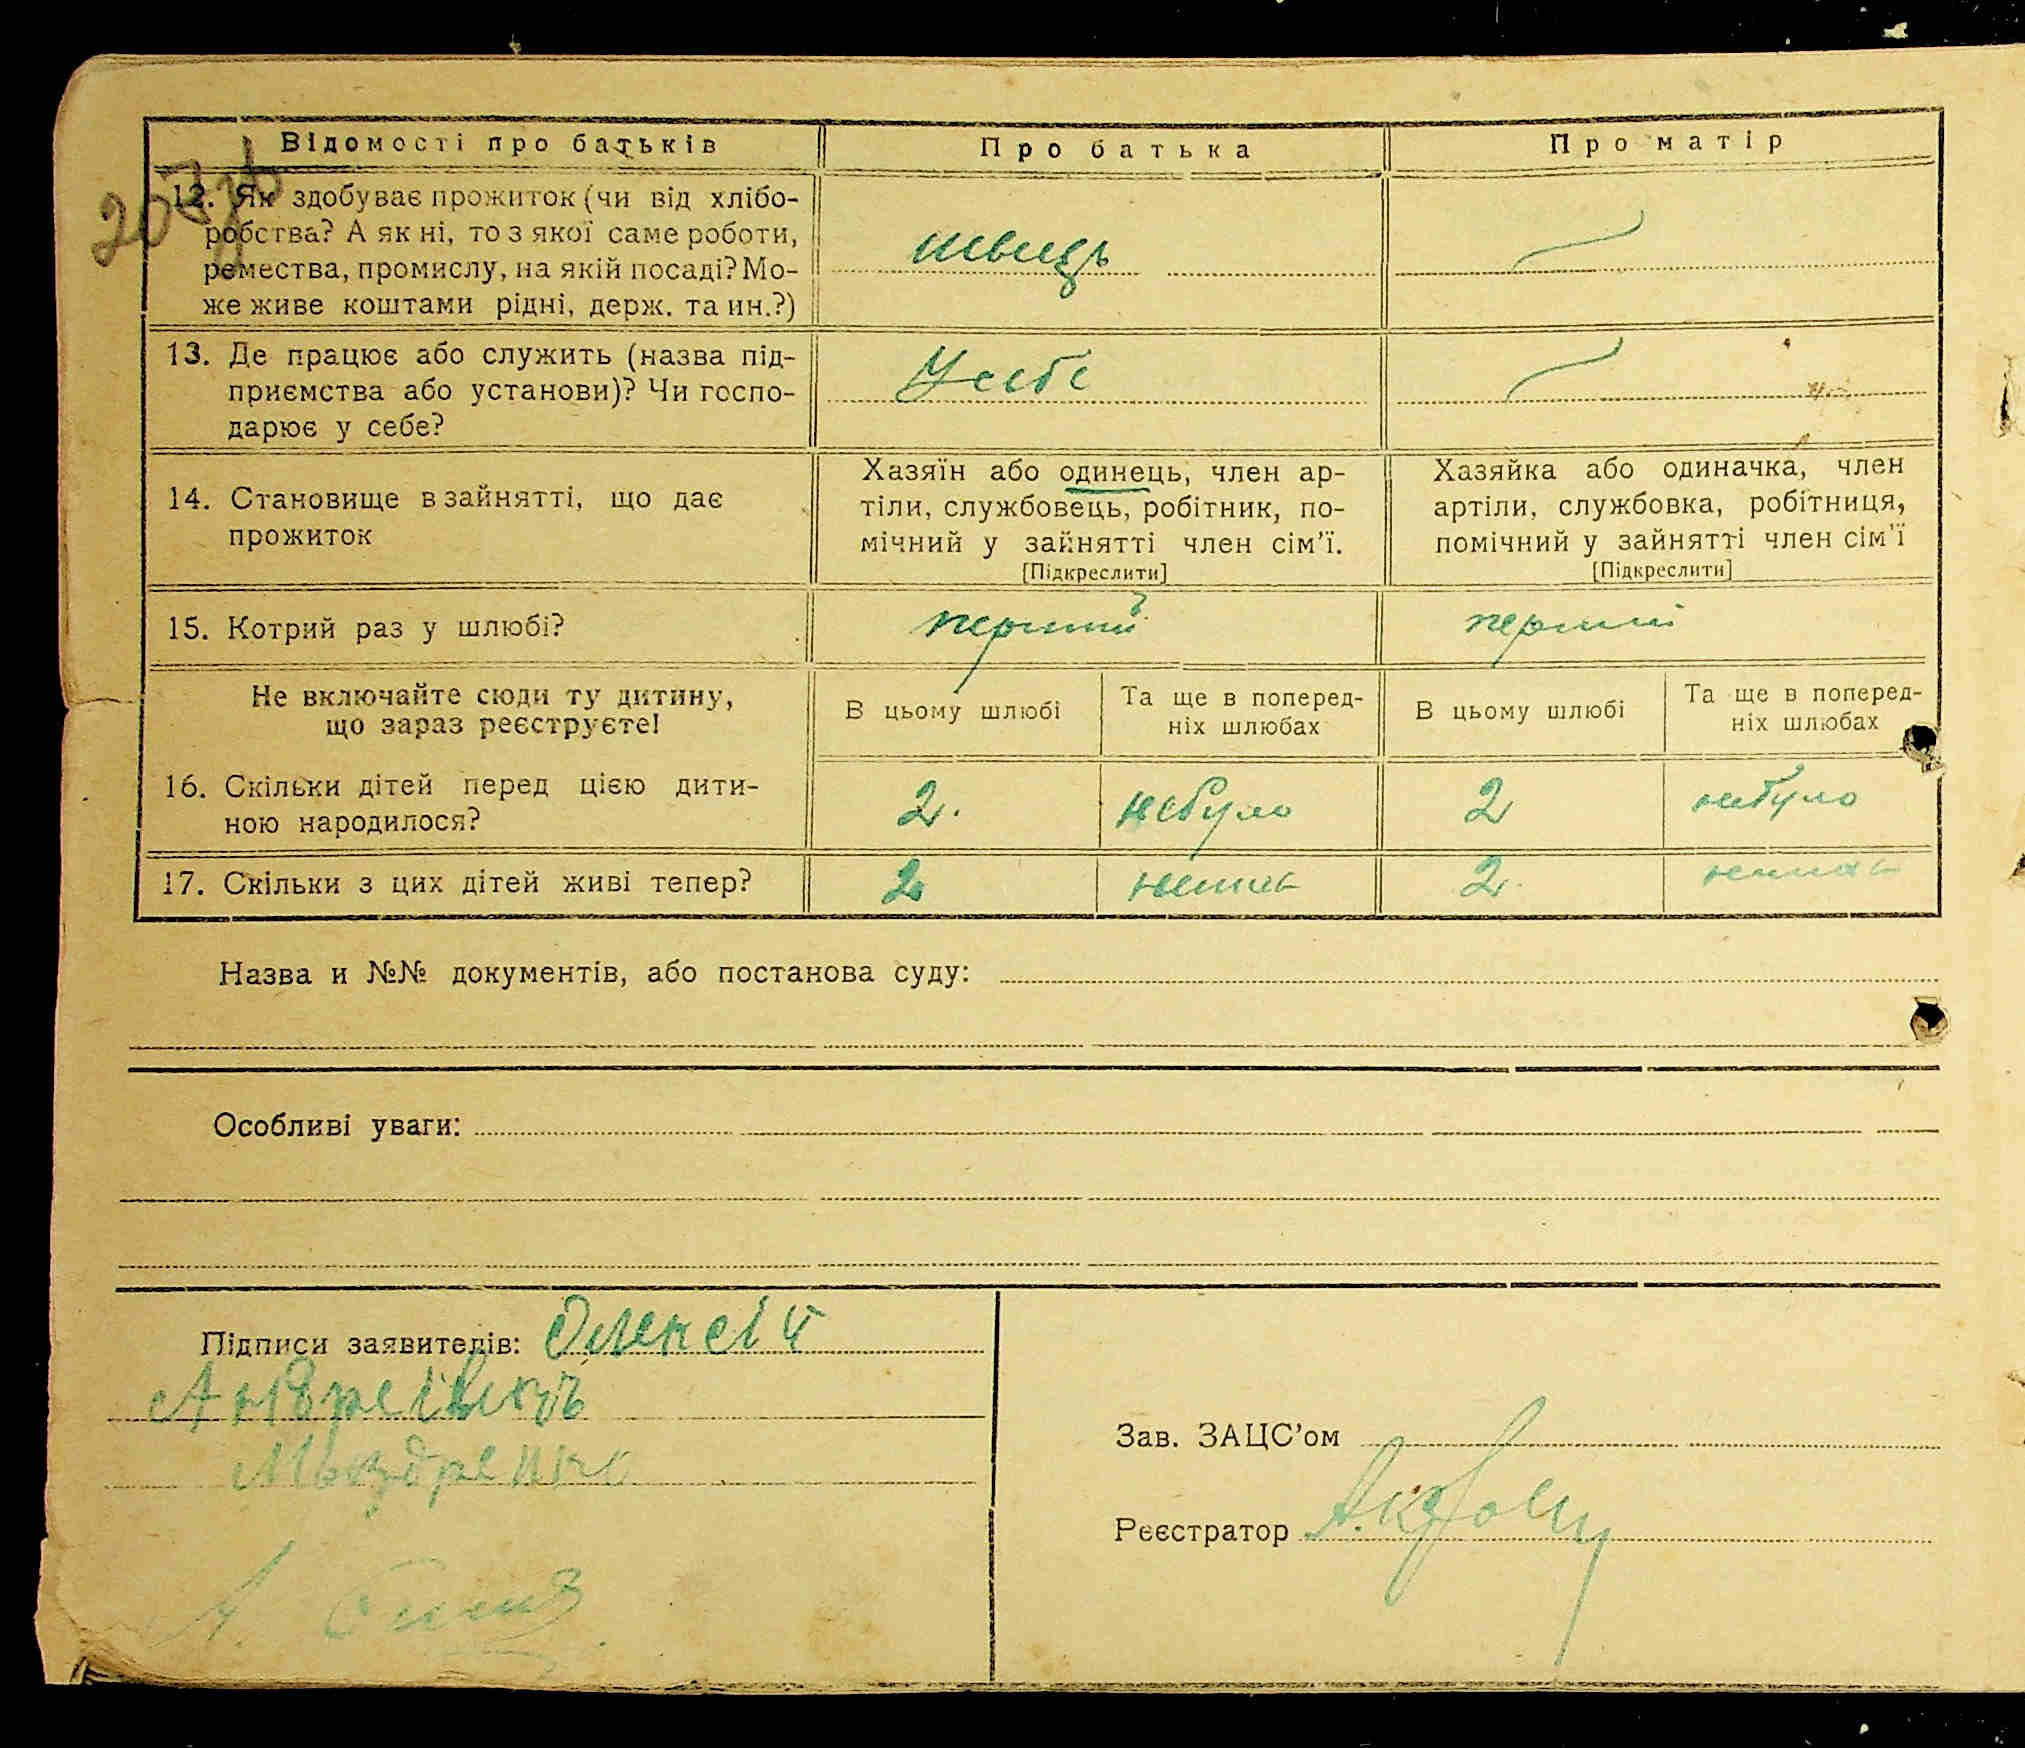 Відомості про батьків
Про батька
Про матір
12. Як здобуває прожиток (чи від хлібо-
робства? А як ні, то з якої саме роботи,
ремества, промислу, на якій посаді? Мо-
же живе коштами рідні, держ. та ин.?)
швець
13. Де працює або служить (назва під-
приємства або установи)? Чи госпо-
дарює у себе?
У себе
14. Становище в зайнятті, що дає
прожиток
Хазяїн або одинець, член ар-
тіли, службовець, робітник, по-
мічний у зайнятті член сім'ї.
[Підкреслити]
Хазяйка або одиначка, член
артіли, службовка, робітниця,
помічний у зайнятті член сім'ї
[Підкреслити]
15. Котрий раз у шлюбі?
перший
перший
Не включайте сюди ту дитину,
що зараз реєструєте!
В цьому шлюбі
Та ще в поперед-
ніх шлюбах
В цьому шлюбі
Та ще в поперед-
ніх шлюбах
16. Скільки дітей перед цією дити-
ною народилося?
2.
небуло
2
небуло
17. Скільки з цих дітей живі тепер?
2
немає
2.
немає
Назва и №№ документів, або постанова суду:
Особливі уваги:
Підписи заявителів: Олексій
Зав. ЗАЦС'ом
Реєстратор